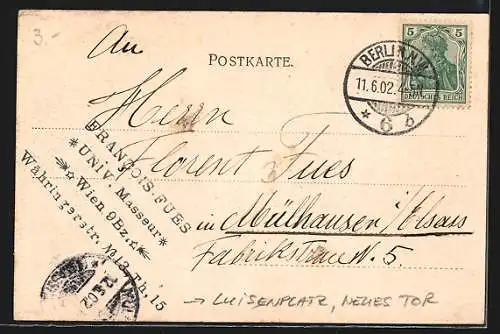 3.-
An
POSTKARTE.
5 5
DEUTSCHES REICH
BERLIN N.W.
11.6.02.
* 6 b
Herrn
Florent Fues
in Mülhausen i/Elsass
Fabrikstrasse N. 5.
FRANÇOIS FUES
* UNIV. Masseur *
Wien 9Bz.
Währingerstr. No 13 Th. 15
12.6.02
→ LUISENPLATZ, NEUES TOR